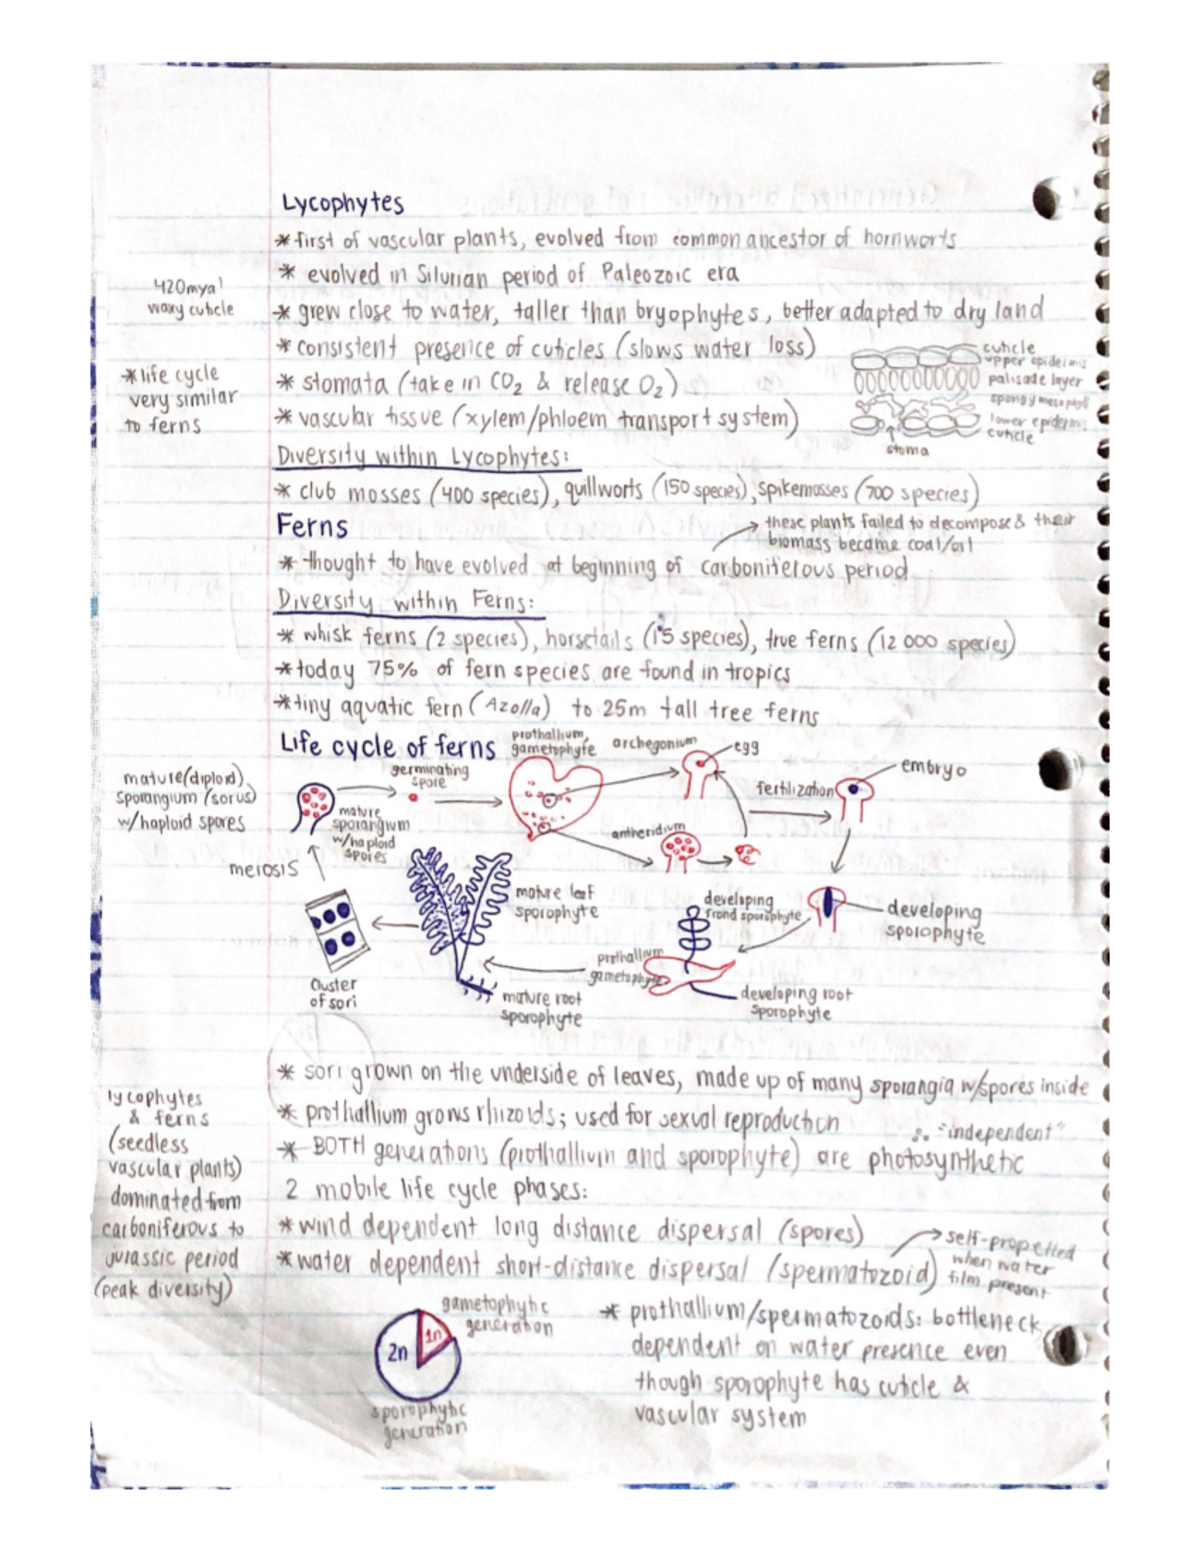 Lycophytes
*first of vascular plants, evolved from common ancestor of hornworts
* evolved in Silurian period of Paleozoic era
420mya!
waxy cuticle
* grew close to water, taller than bryophytes, better adapted to dry land
* consistent presence of cuticles (slows water loss)
cuticle
upper epidermis
palisade layer
spongy mesophyll
lower epidermis
cuticle
stoma
*life cycle
very similar
to ferns
* stomata (take in CO₂ & release O₂)
* vascular tissue (xylem/phloem transport system)
Diversity within Lycophytes:
* club mosses (400 species), quillworts (150 species), spikemosses (700 species)
Ferns
→ these plants failed to decompose & their
biomass became coal/oil
* thought to have evolved at beginning of carboniferous period
Diversity within Ferns:
* whisk ferns (2 species), horsetails (15 species), true ferns (12 000 species)
*today 75% of fern species are found in tropics
*tiny aquatic fern (Azolla) to 25m tall tree ferns
Life cycle of ferns
prothallium,
gametophyte
archegonium
egg
germinating
spore
mature(diploid)
sporangium (sorus)
w/haploid spores
mature
sporangium
w/haploid
spores
fertilization
embryo
antheridium
meiosis
mature leaf
sporophyte
developing
frond sporophyte
developing
sporophyte
prothallium
gametophyte
cluster
of sori
mature root
sporophyte
developing root
sporophyte
* sori grown on the underside of leaves, made up of many sporangia w/spores inside
* prothallium grows rhizoids; used for sexual reproduction
∴ "independent"
* BOTH generations (prothallium and sporophyte) are photosynthetic
lycophytes
& ferns
(seedless
vascular plants)
dominated from
carboniferous to
jurassic period
(peak diversity)
2 mobile life cycle phases:
*wind dependent long distance dispersal (spores)
*water dependent short-distance dispersal (spermatozoid)
→ self-propelled
when water
film present
gametophytic
generation
1n
2n
sporophytic
generation
* prothallium/spermatozoids: bottleneck
dependent on water presence even
though sporophyte has cuticle &
vascular system